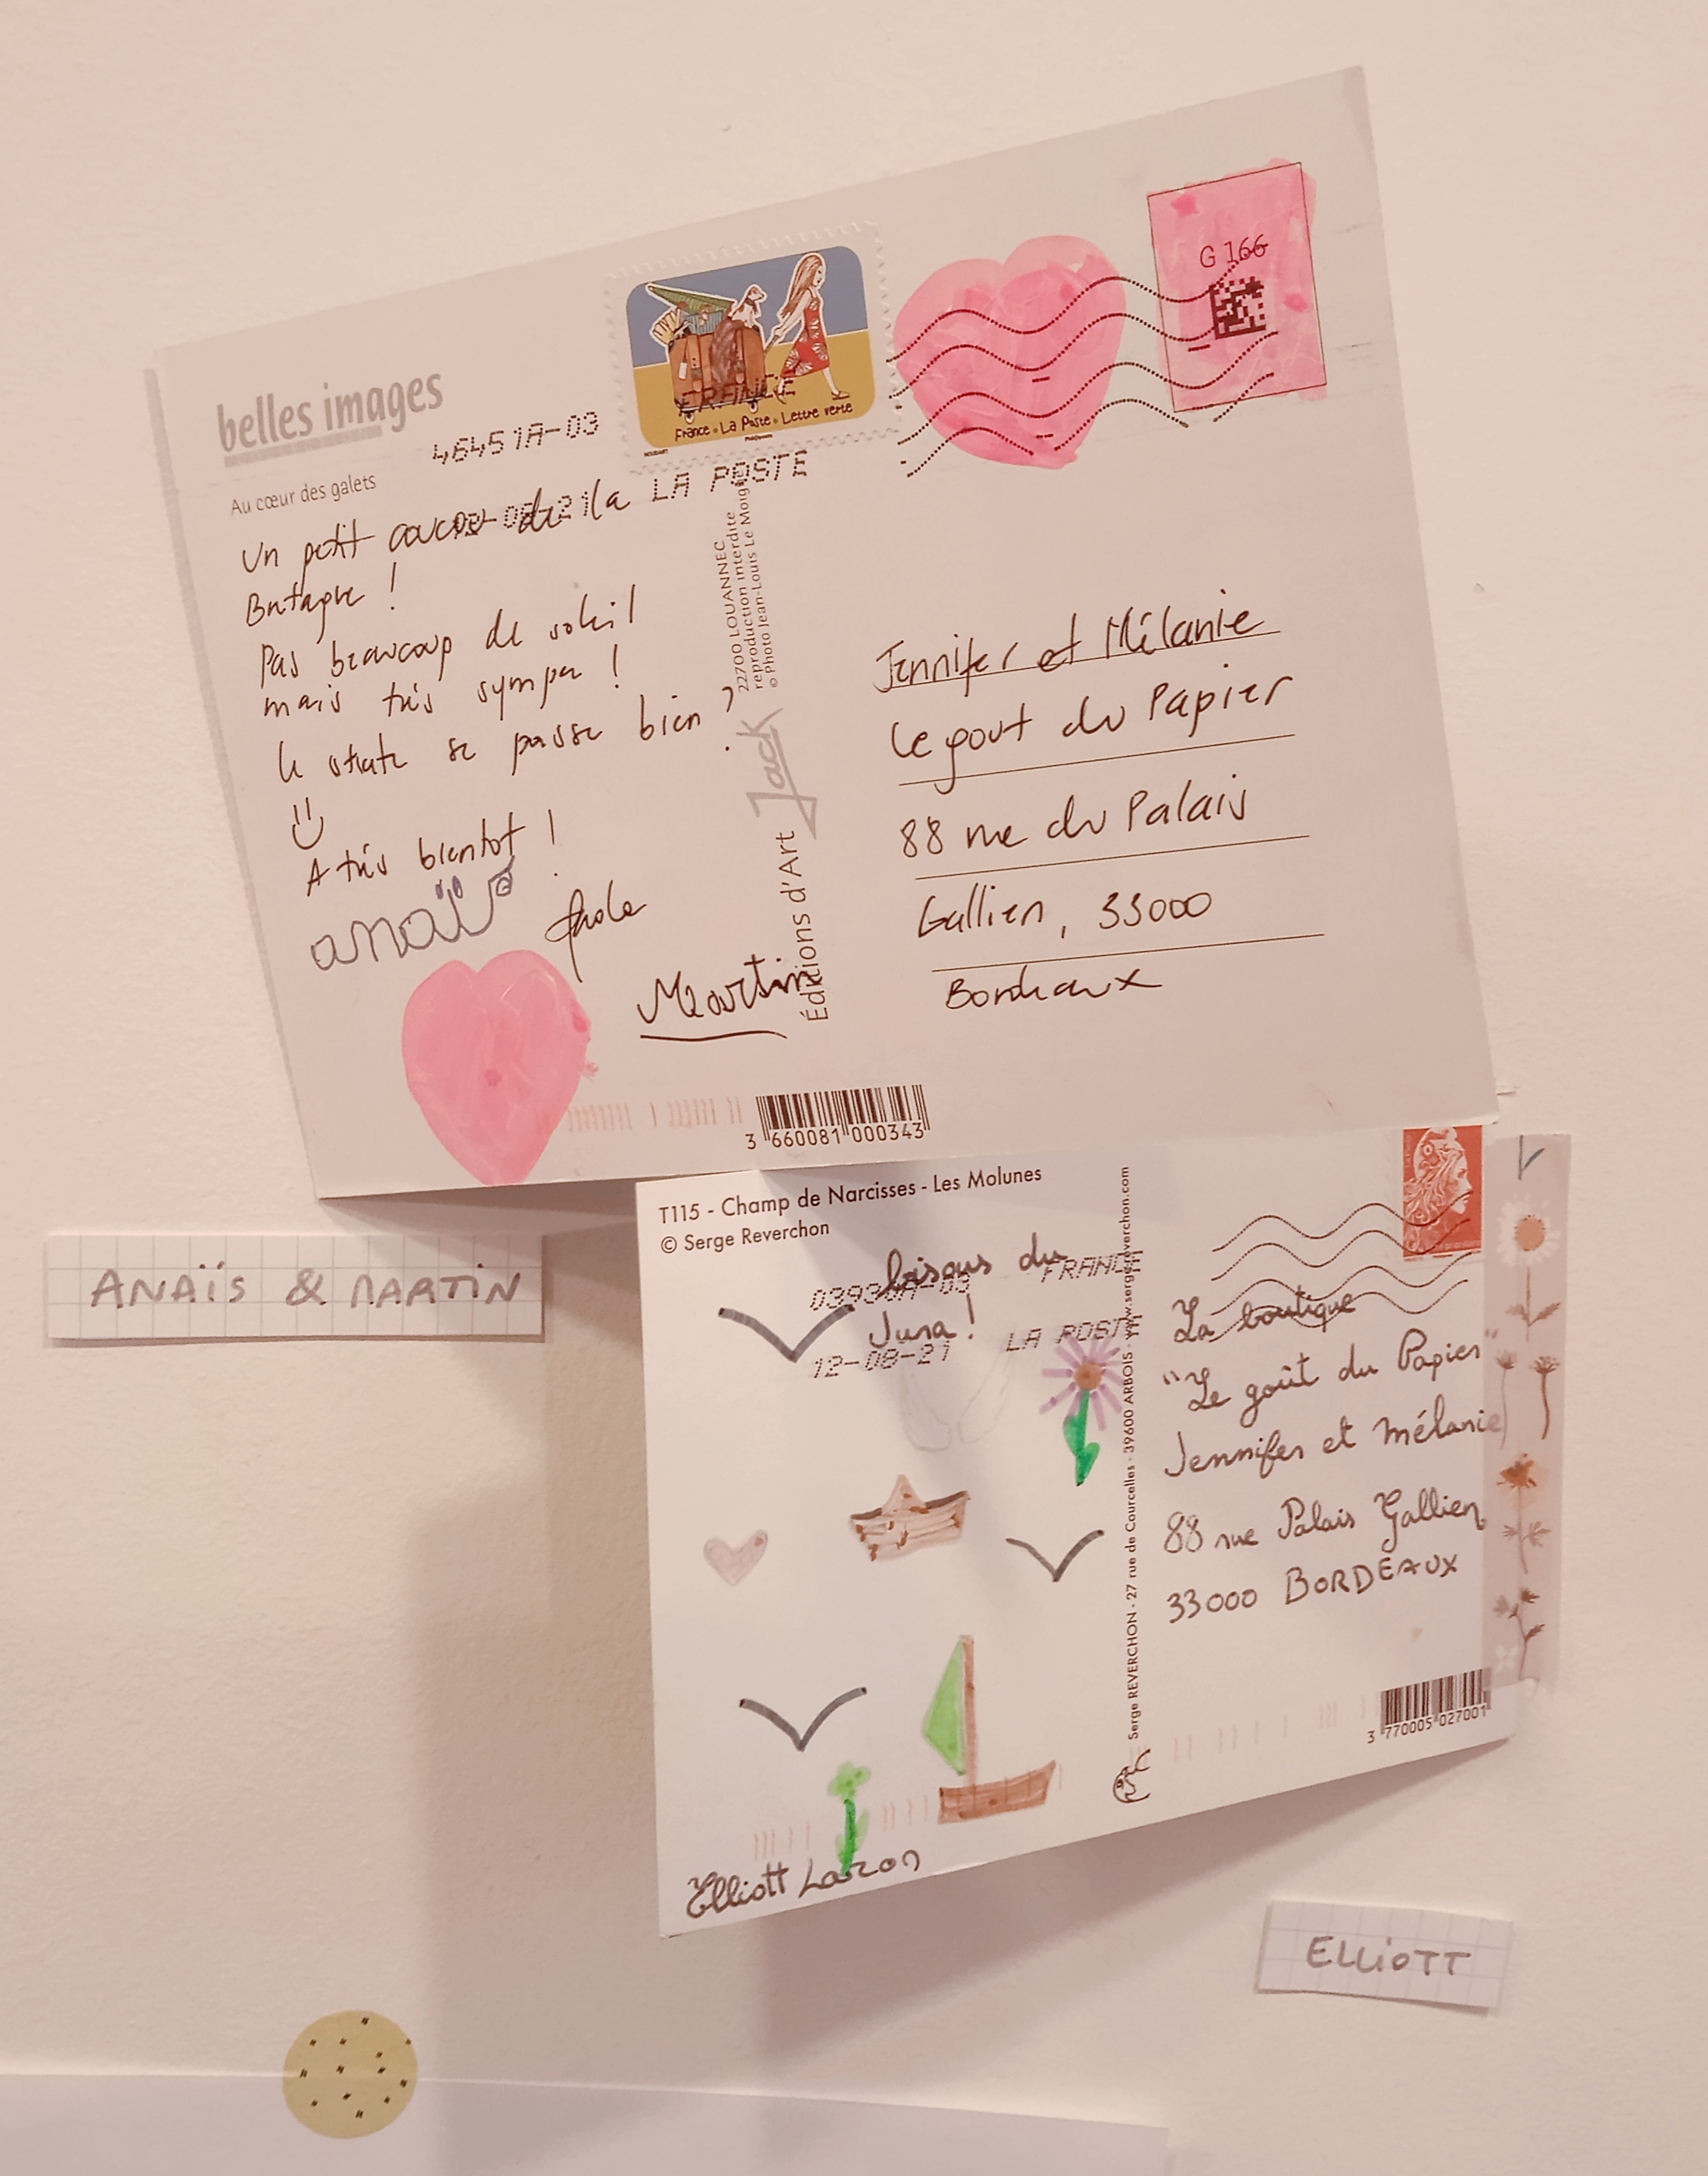 belles images
46451A-03
Au cœur des galets
LA POSTE
Un petit coucou de la
Bretagne !
Pas beaucoup de soleil
mais très sympa !
le stage se passe bien ?
A très bientot !
anaïs
Martin
France • La Poste • Lettre verte
FRANCE
G 166
22700 LOUANNEC
reproduction interdite
© Photo Jean-Louis Le Moigne
Éditions d'Art Jack
Jennifer et Mélanie
Le gout du Papier
88 rue du Palais
Gallien, 33000
Bordeaux
3 660081 000343
ANAïS & MARTiN
T115 - Champ de Narcisses - Les Molunes
© Serge Reverchon
bisous du
Jura !
FRANCE
LA POSTE
12-08-21
Elliott
Serge REVERCHON - 27 rue de Courcelles - 39600 ARBOIS - www.sergereverchon.com
La boutique
"Le goût du Papier"
Jennifer et Mélanie
88 rue Palais Gallien
33000 BORDEAUX
3 770005 027001
ELLiOTT